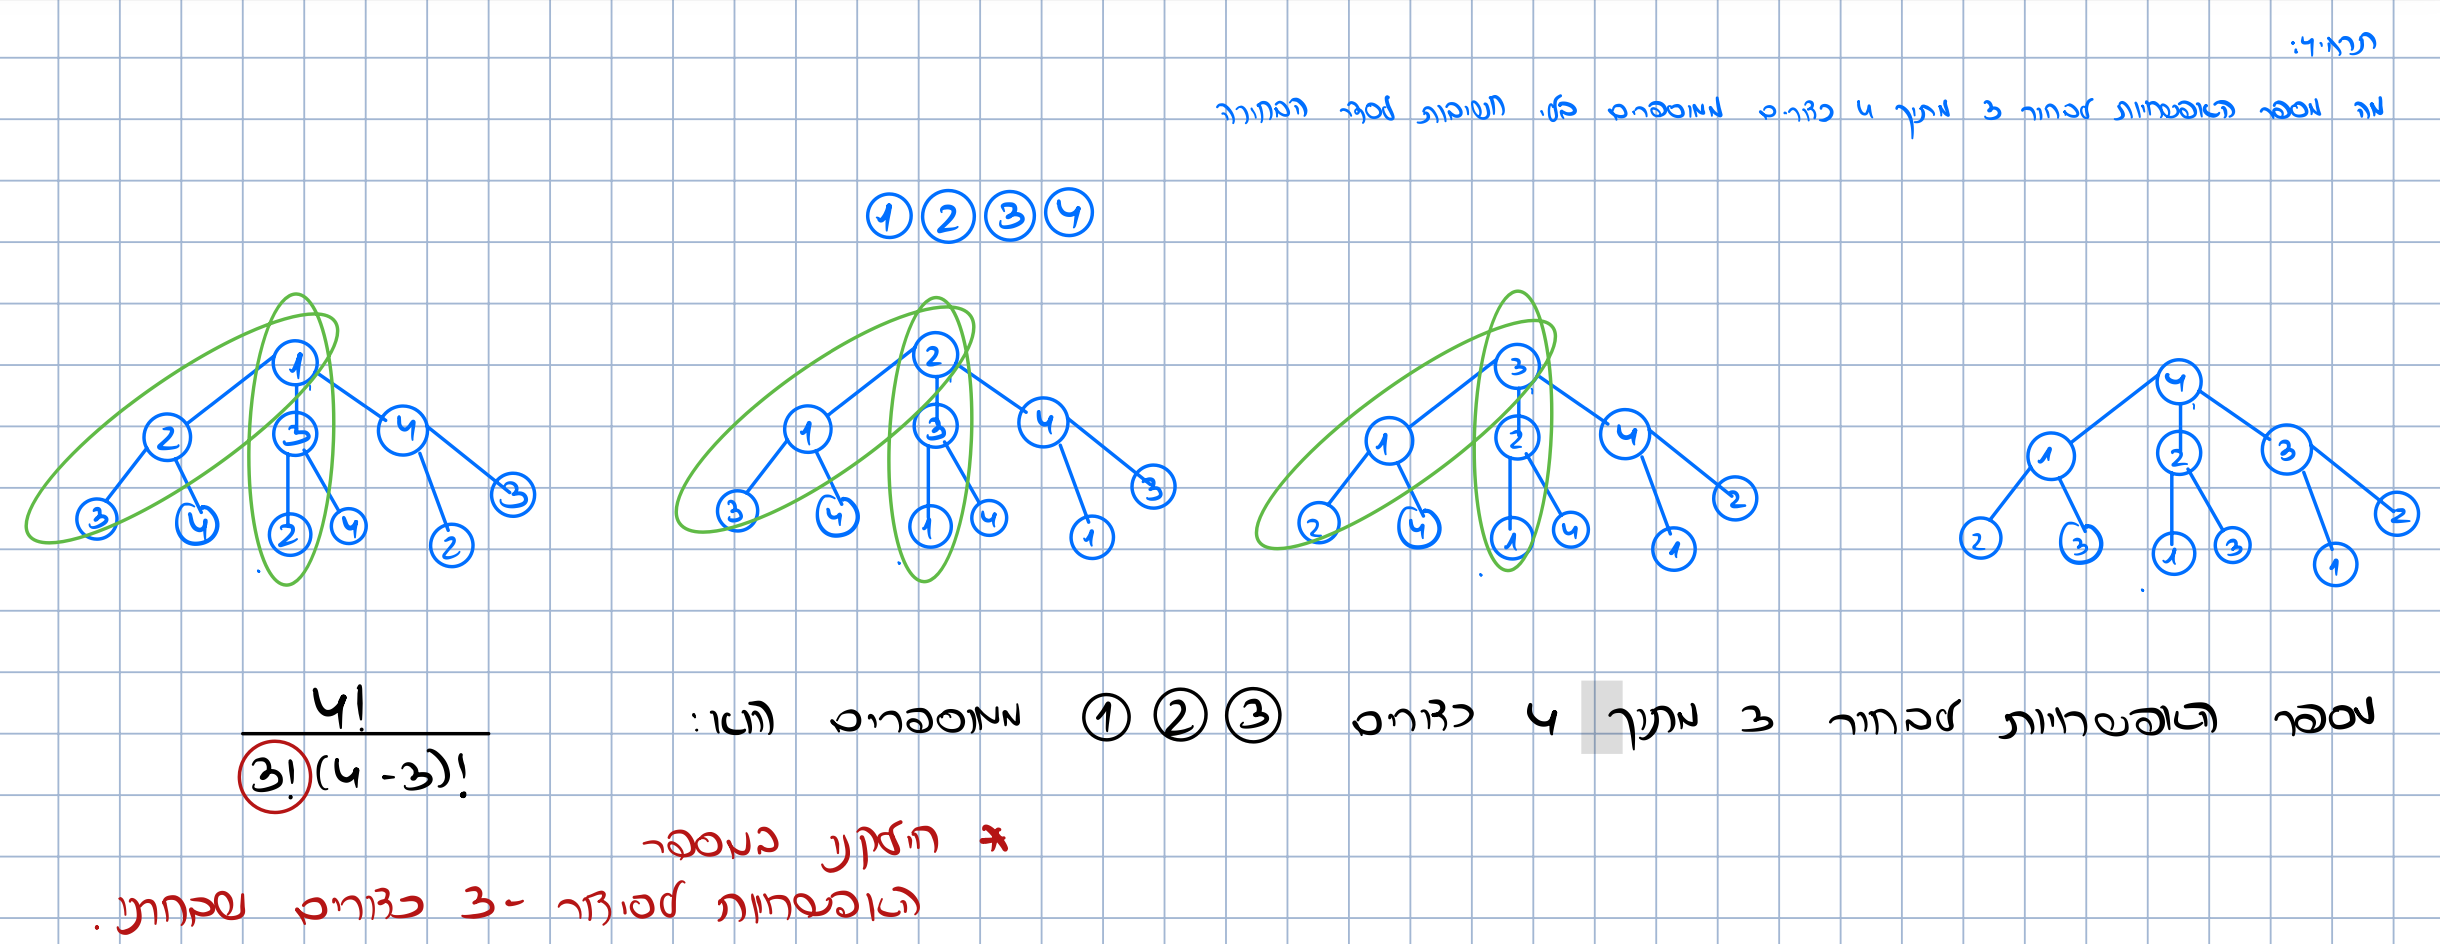 תרא״ץ:
מה מספר האופציות לבחור 3 מתוך 4 כדורים ממוספרים בלי חשיבות לסדר הבחורה
1 2 3 4
1 2 3 4
2 3 4 1 3 4 1 2 4 1 2 3
3 4 2 4 2 3 3 4 1 4 1 3 2 4 1 4 1 2 2 3 1 3 1 2
מספר האופציות לבחור 3 מתוך 4 כדורים 3 2 1 ממוספרים הוא:
4!
3!(4-3)!
* חילקנו במספר
האופציות לסידור 3- כדורים שבחרנו.